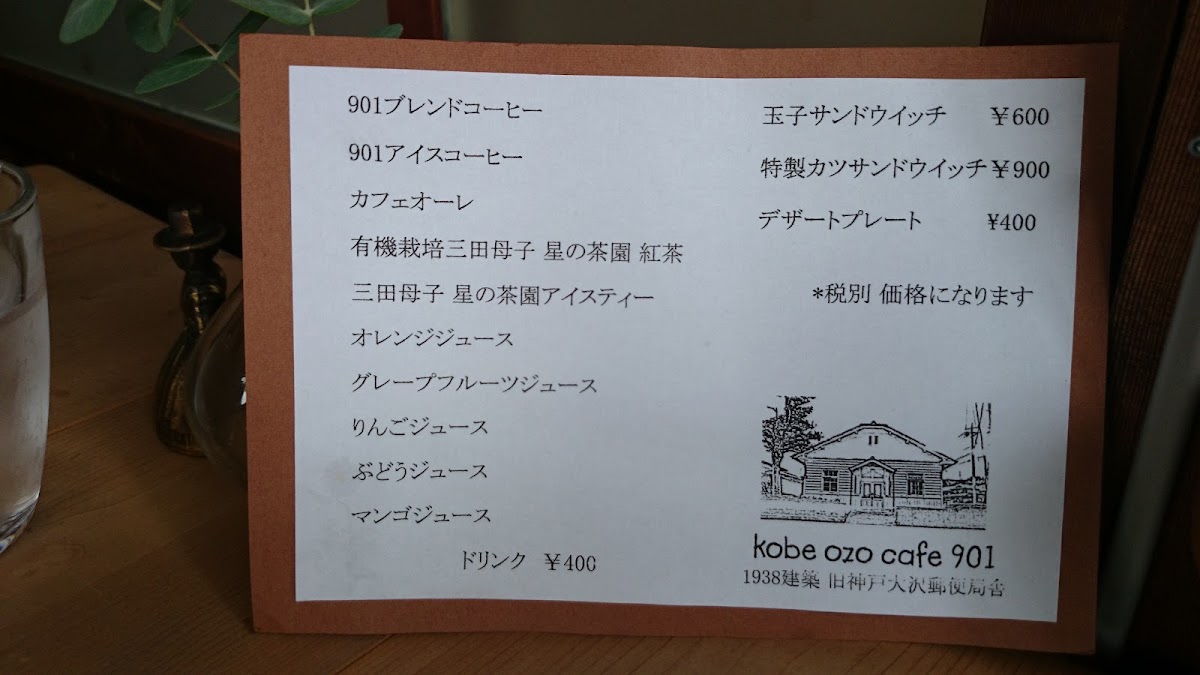 901ブレンドコーヒー
901アイスコーヒー
カフェオーレ
有機栽培三田母子 星の茶園 紅茶
三田母子 星の茶園アイスティー
オレンジジュース
グレープフルーツジュース
りんごジュース
ぶどうジュース
マンゴジュース
ドリンク ￥400
玉子サンドウイッチ ￥600
特製カツサンドウイッチ￥900
デザートプレート ¥400
*税別 価格になります
kobe ozo cafe 901
1938建築 旧神戸大沢郵便局舎